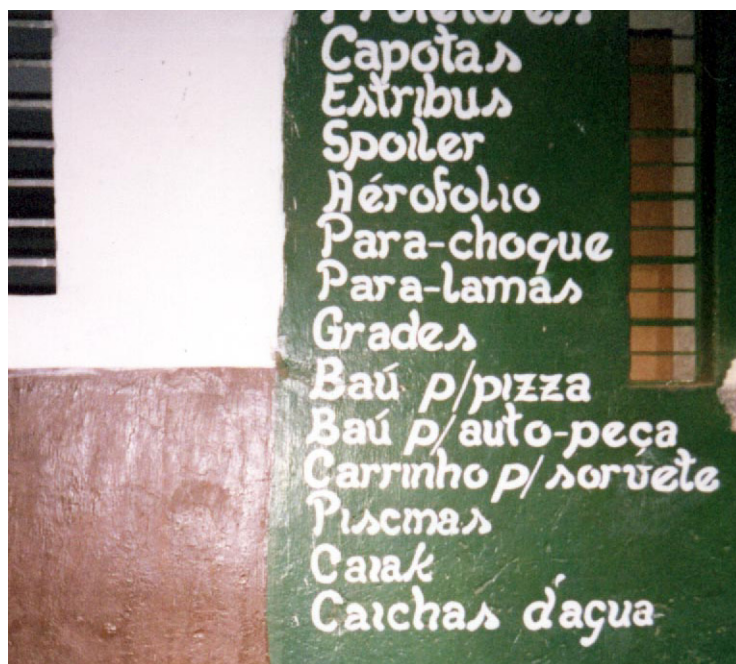 Capotas
Estribus
Spoiler
Aérofolio
Para-choque
Para-lamas
Grades
Baú p/pizza
Baú p/auto-peça
Carrinho p/sorvete
Piscinas
Caiak
Caichas d'água